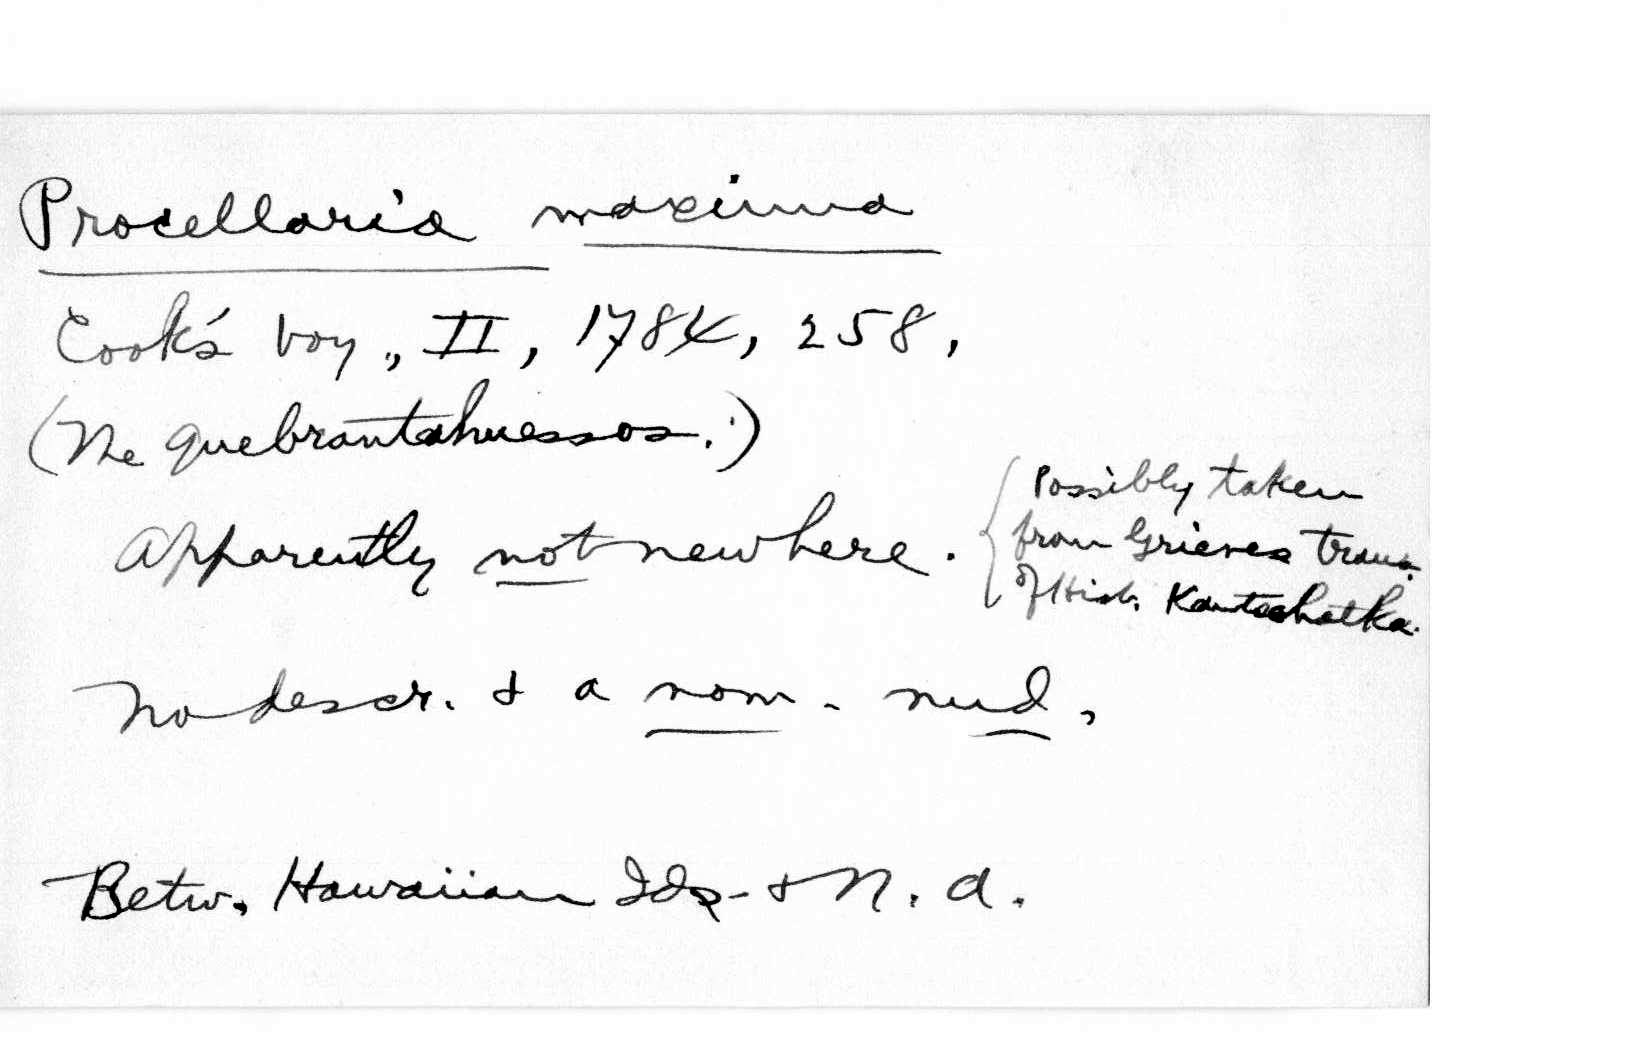 Procellaria maxima
Cook's voy., II, 1784, 258,
(The quebrantahuessos.)
Apparently not new here.
{Possibly taken
from Grieves trans.
of Hist. Kamtschatka.
No descr. & a nom. nud,
Betw. Hawaiian Ids. & N. A.